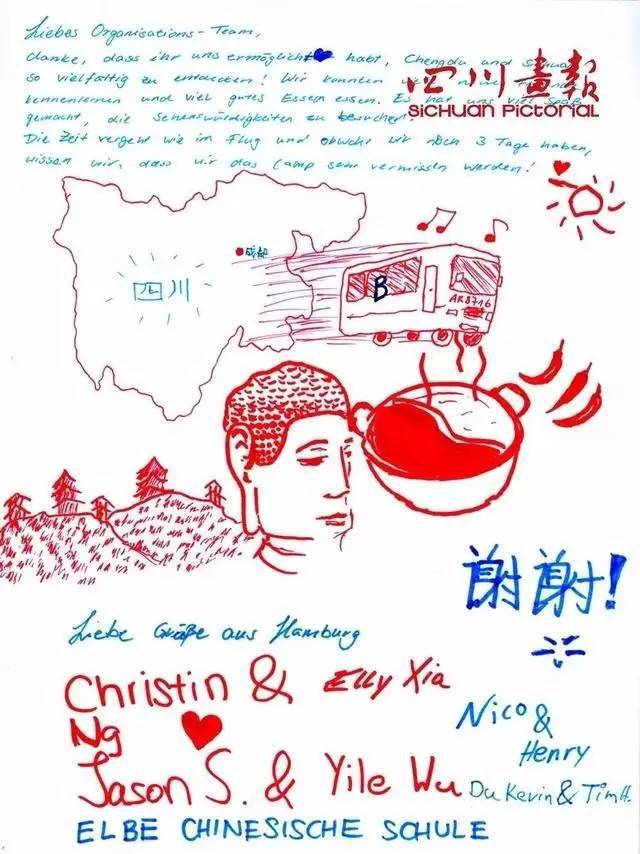 Liebes Organisations-Team,
danke, dass ihr uns ermöglicht habt, Chengdu und
so vielfältig zu entdecken! Wir konnten
kennenlernen und viel gutes Essen essen. Es hat uns viel Spaß
gemacht, die Sehenswürdigkeiten zu besuchen.
Die Zeit vergeht wie im Flug und obwohl wir noch 3 Tage haben,
wissen wir, dass wir das Camp sehr vermissen werden!
四川畫報
SICHUAN PICTORIAL
成都
四川
B
AR8716
谢谢!
Liebe Grüße aus Hamburg
Christin & Elly Xia
Ng
Nico &
Henry
Jason S. & Yile Wu
Du Kevin & Tim H.
ELBE CHINESISCHE SCHULE